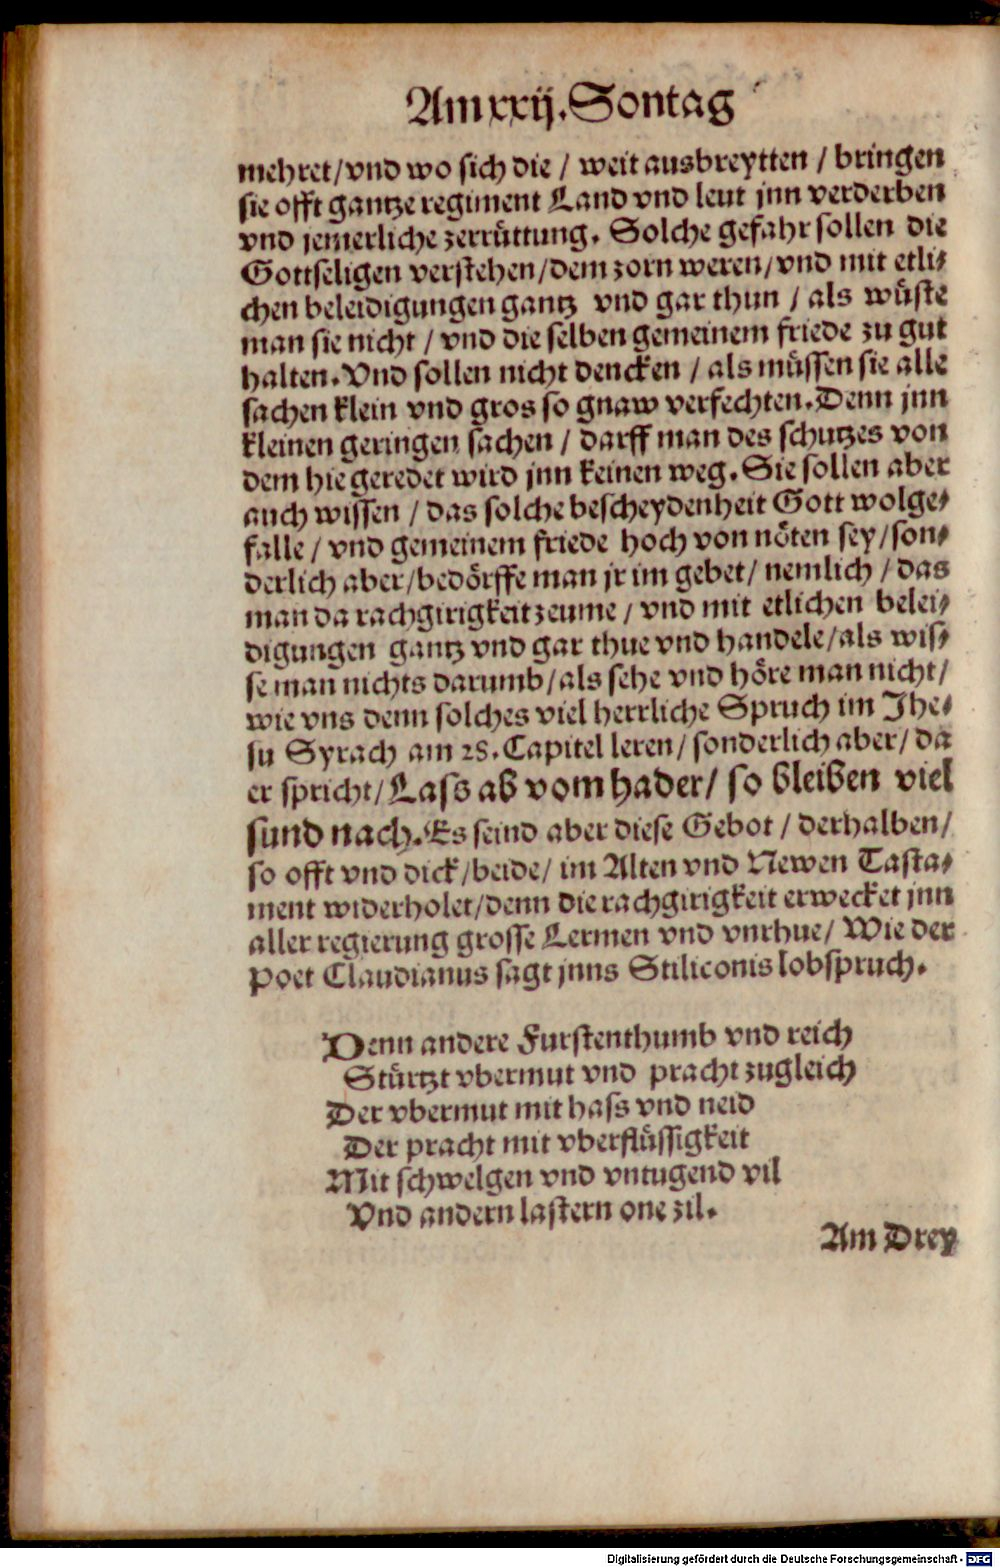 Am xxij. Sontag
mehret/vnd wo sich die / weit ausbreytten / bringen
sie offt gantze regiment Land vnd leut jnn verderben
vnd jemerliche zerrüttung. Solche gefahr sollen die
Gottseligen verstehen/dem zorn weren/vnd mit etli-
chen beleidigungen gantz vnd gar thun / als wüste
man sie nicht / vnd die selben gemeinem friede zu gut
halten. Vnd sollen nicht dencken / als müssen sie alle
sachen klein vnd gros so gnaw verfechten. Denn jnn
kleinen geringen sachen / darff man des schutzes von
dem hie geredet wird jnn keinen weg. Sie sollen aber
auch wissen / das solche bescheydenheit Gott wolge-
falle / vnd gemeinem friede hoch von nöten sey/son-
derlich aber/bedörffe man jr im gebet/ nemlich / das
man da rachgirigkeit zeume / vnd mit etlichen belei-
digungen gantz vnd gar thue vnd handele/als wis-
se man nichts darumb/als sehe vnd höre man nicht/
wie vns denn solches viel herrliche Spruch im Jhe-
su Syrach am 28. Capitel leren/ sonderlich aber/ da
er spricht/ Lass ab vom hader/ so bleiben viel
sund nach. Es seind aber diese Gebot / derhalben/
so offt vnd dick/beide/ im Alten vnd Newen Tasta-
ment widerholet/denn die rachgirigkeit erwecket jnn
aller regierung grosse Lermen vnd vnrhue/ Wie der
Poet Claudianus sagt jnns Stiliconis lobspruch.
Denn andere Furstenthumb vnd reich
Stürtzt vbermut vnd pracht zugleich
Der vbermut mit hass vnd neid
Der pracht mit vberflüssigkeit
Mit schwelgen vnd vntugend vil
Vnd andern lastern one zil.
Am Drey
Digitalisierung gefördert durch die Deutsche Forschungsgemeinschaft - DFG